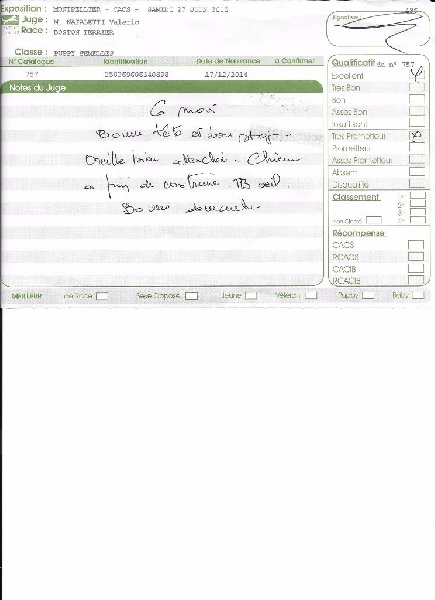 Exposition : MONTPELLIER - CACS - SAMEDI 27 JUIN 2015
Juge : M. NATALETTI Valerio
Race : BOSTON TERRIER
Classe : PUPPY FEMELLES
N° Catalogue Identification Date de Naissance à Confirmer
757 17/12/2014
Notes du Juge
6 mois
Bonne tête et bon
Oreille bien attachée. Chienne
de construire TB
Bonne
Signature :
Qualificatif du n° 757
Excellent
Très Bon
Bon
Assez Bon
Insuffisant
Très Prometteur
Prometteur
Assez Prometteur
Absent
Disqualifié
Classement
Non Classé
Récompense
CACS
RCACS
CACIB
RCACIB
MEILLEUR de Race Sexe Opposé Jeune Vétéran Puppy Baby